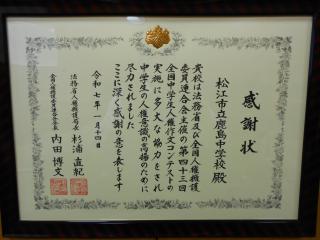 感謝状
松江市立鹿島中学校 殿
貴校は法務省及び全国人権擁護
委員連合会主催の第四十三回
全国中学生人権作文コンテストの
実施に多大な協力をされ
中学生の人権意識の高揚のために
尽力されました
ここに深く感謝の意を表します
令和七年一月十四日
法務省人権擁護局長 杉浦直紀
全国人権擁護委員連合会会長 内田博文